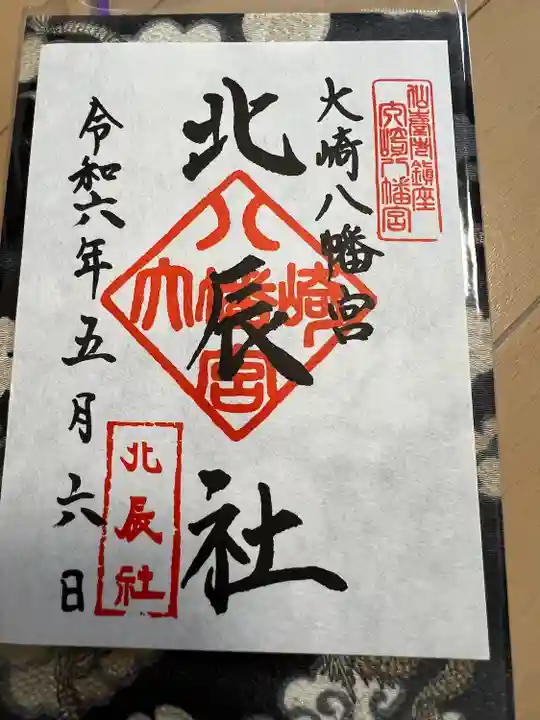 仙臺總鎮座
大崎八幡宮
大崎八幡宮
北辰社
八幡宮
大崎
北辰社
令和六年五月六日